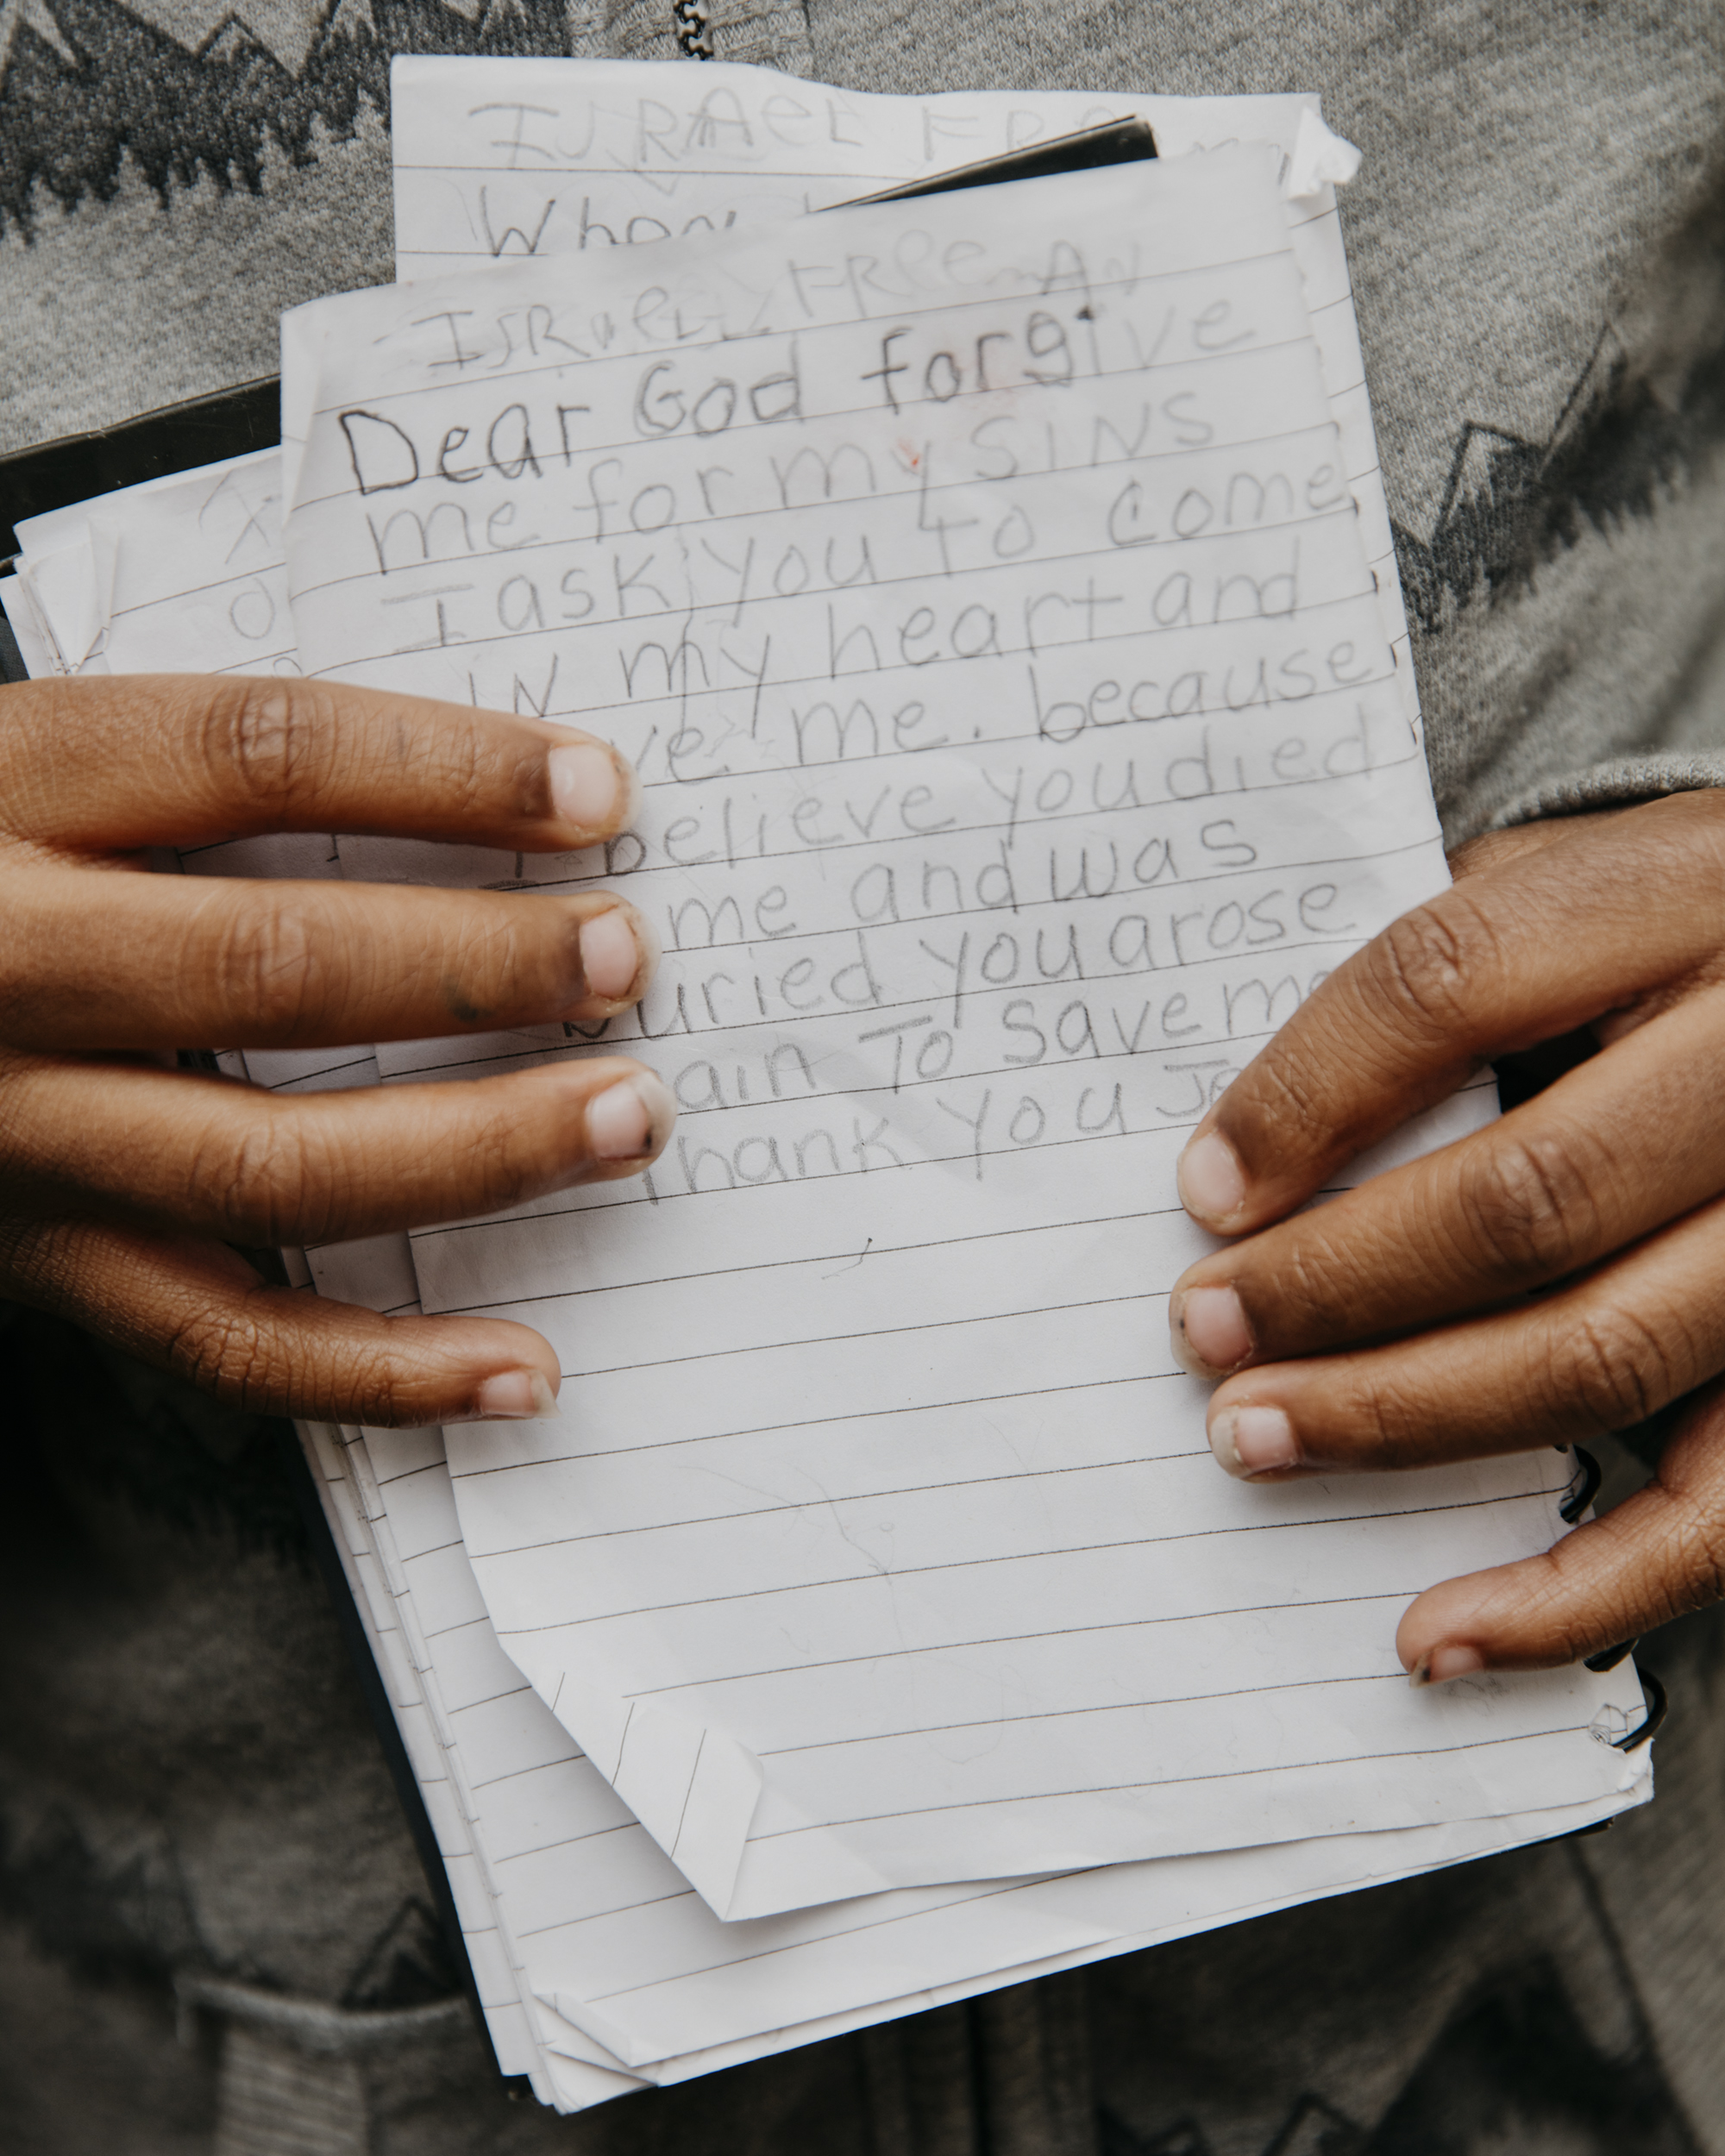 ISRAEL FR
Whom
ISRael FReemAN
Dear God forgive
me for my SINS
I ask you to come
IN my heart and
ve me. because
I believe you died
me and was
buried you arose
ain To save me
Thank you Je